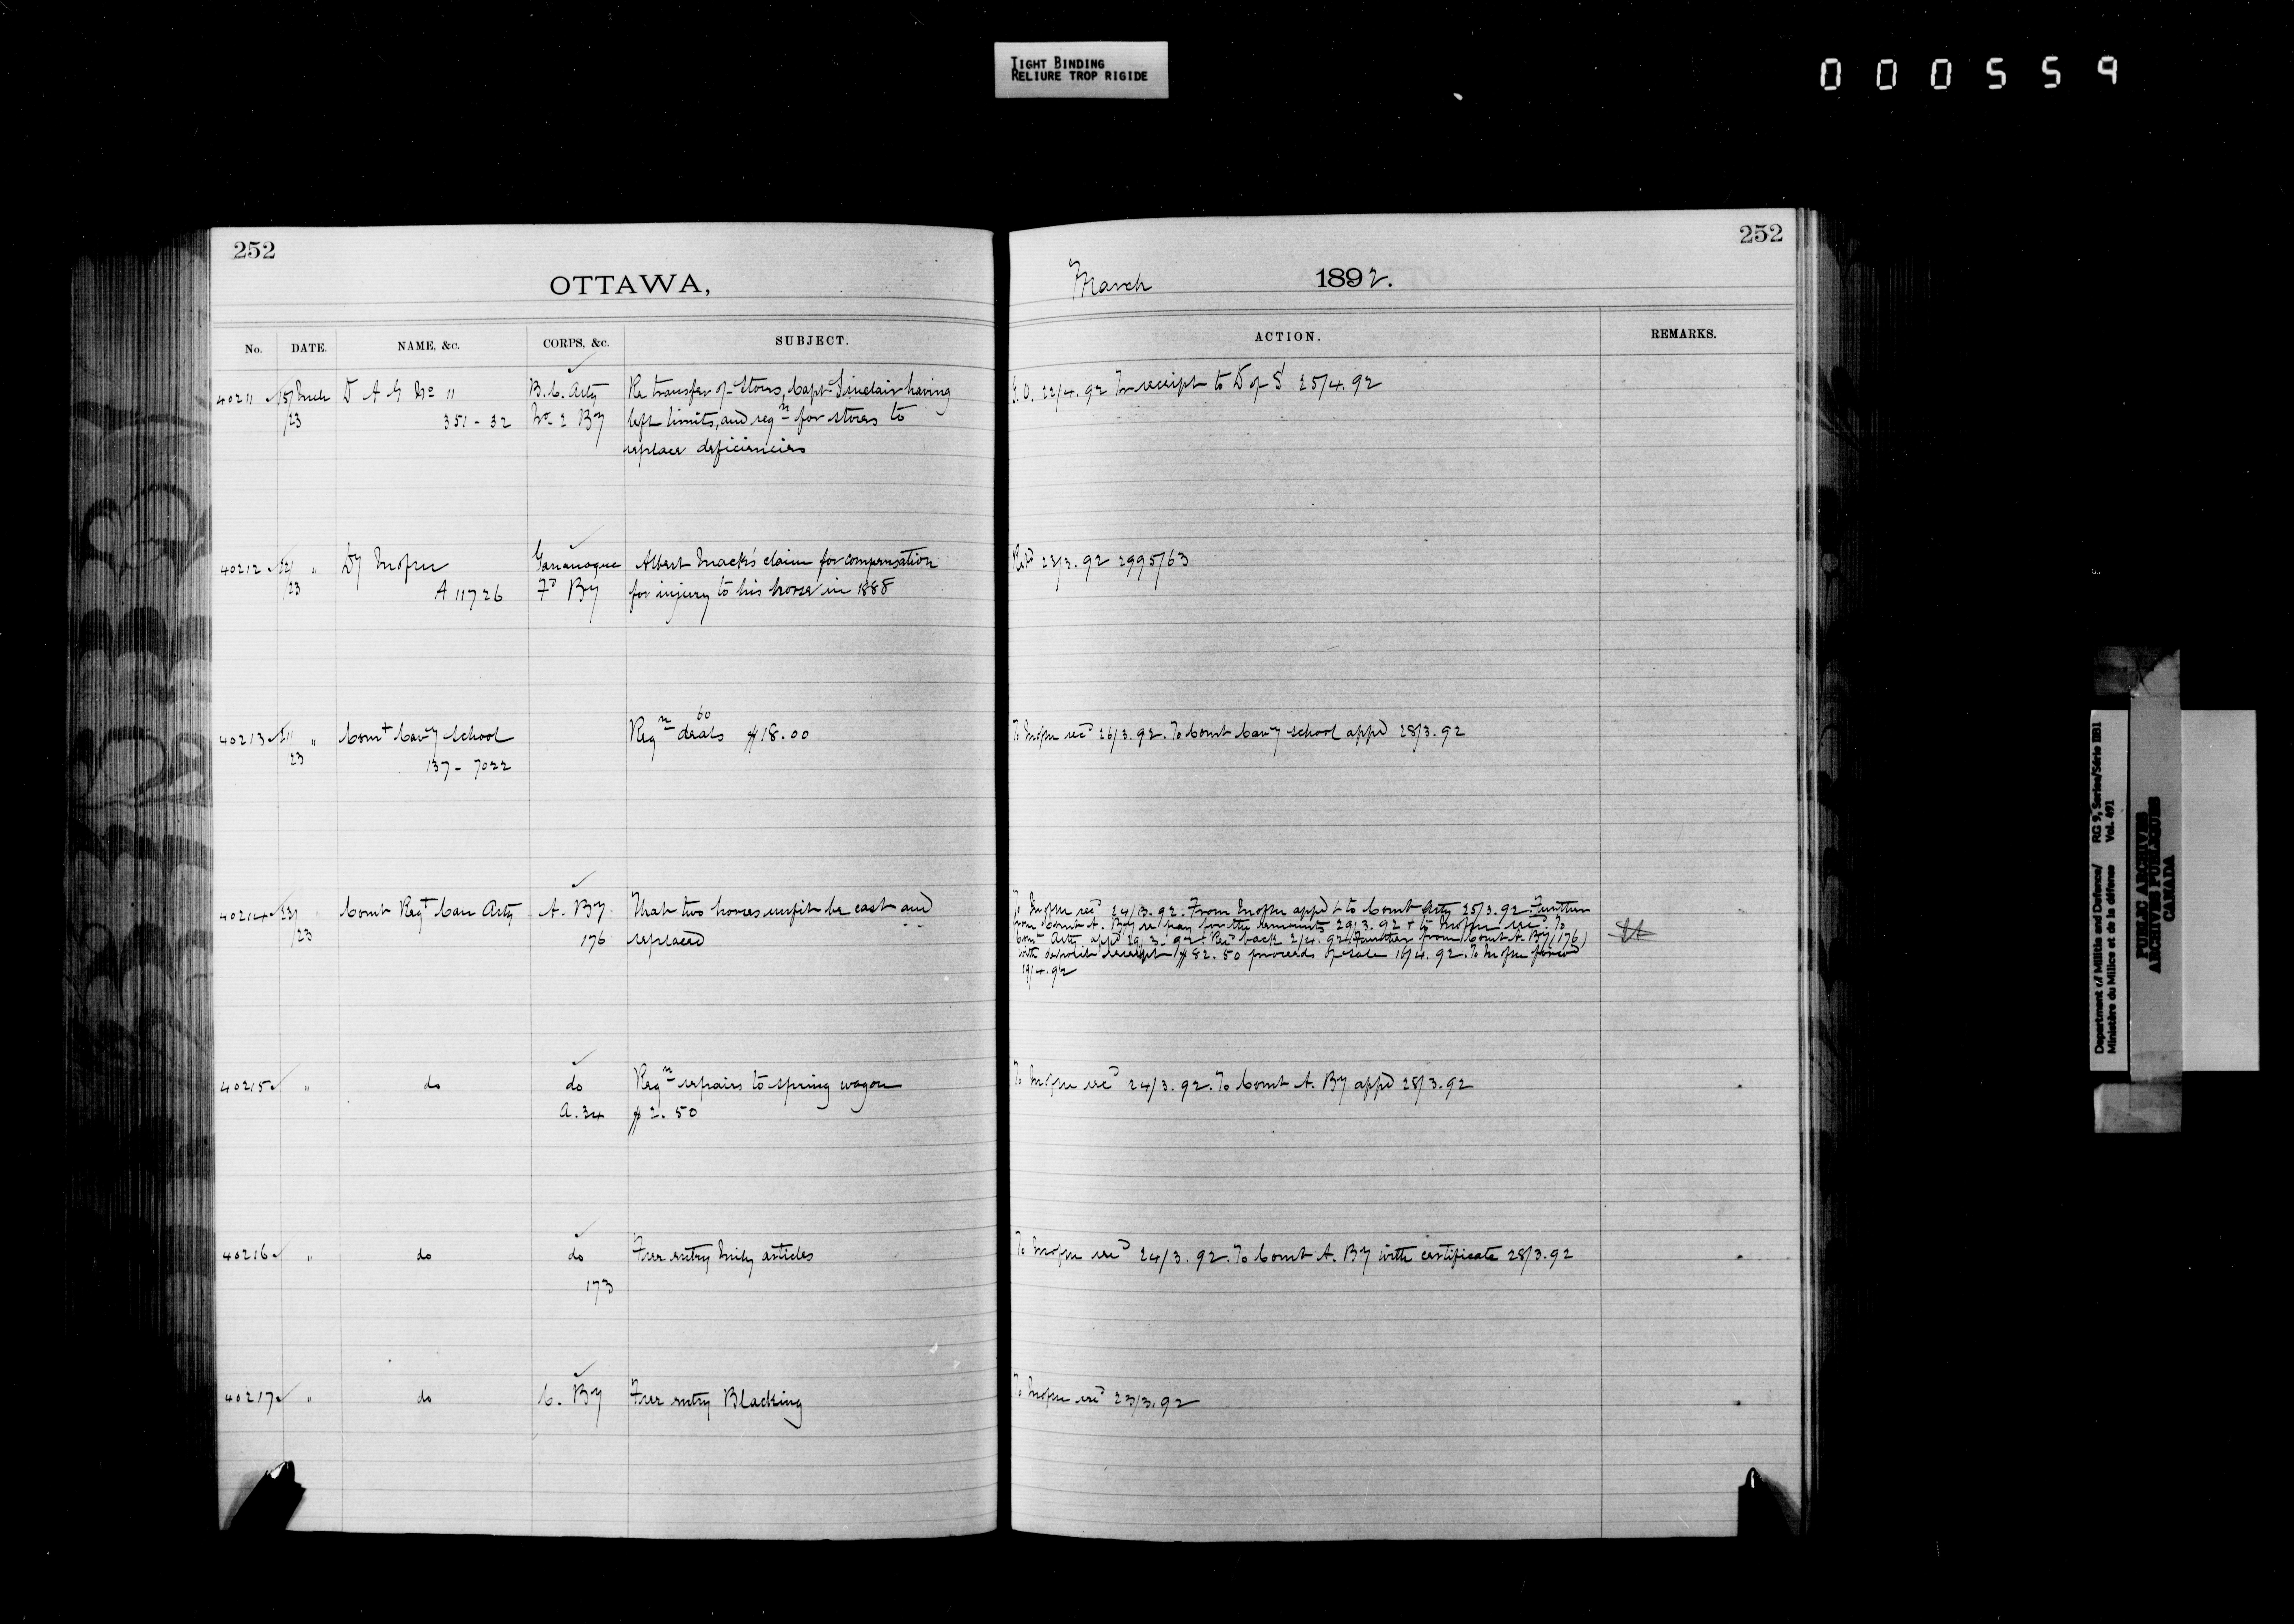 TIGHT BINDING
RELIURE TROP RIGIDE
000559
252
OTTAWA,
No. DATE. NAME, &c. CORPS, &c. SUBJECT.
40211 15/ March D A G No 11 B.C. Arty Re transfer of Stores, Capt Sinclair having
/23 351 - 32 No 2 By left limits, and reqn for stores to
replace deficiencies
40212 " Dy Gananoque Albert Mack's claim for compensation
/23 A 11726 Fd By for injury to his horse in 1888
60
40213 " Comt Cavy School Reqn deals $18.00
23 137 - 7022
40214 22/ " Comt Regt Can Arty A. By That two horses unfit be cast and
/23 176 replaced
40215 " do do Reqn repairs to spring wagon
A. 34 $2.50
40216 " do do Free entry Mily articles
173
40217 " do C. By Free entry Blacking
252
March 1892.
ACTION. REMARKS.
G.O. 22/4.92 In receipt to D of S 25/4.92
Retd 23/3.92 2995/63
To recd 26/3.92. To Comt Cavy School appd 28/3.92
To recd 24/3.92. From appd & to Comt Arty 25/3.92 Further
from Comt A. By re pay for the remounts 29/3.92 & to recd. To
Comt Arty appd 29/3.92. Recd back 2/4.92. Further from Comt A. By (176)
with deposit receipt $82.50 proceeds of sale 16/4.92. To
19/4.92
To recd 24/3.92. To Comt A. By appd 28/3.92
To recd 24/3.92. To Comt A. By with certificate 28/3.92
To recd 23/3.92
Department of Militia and Defence/ RG 9, Series/Série IIB1
Ministère du Milice et de la défense Vol. 491
PUBLIC ARCHIVES
ARCHIVES PUBLIQUES
CANADA